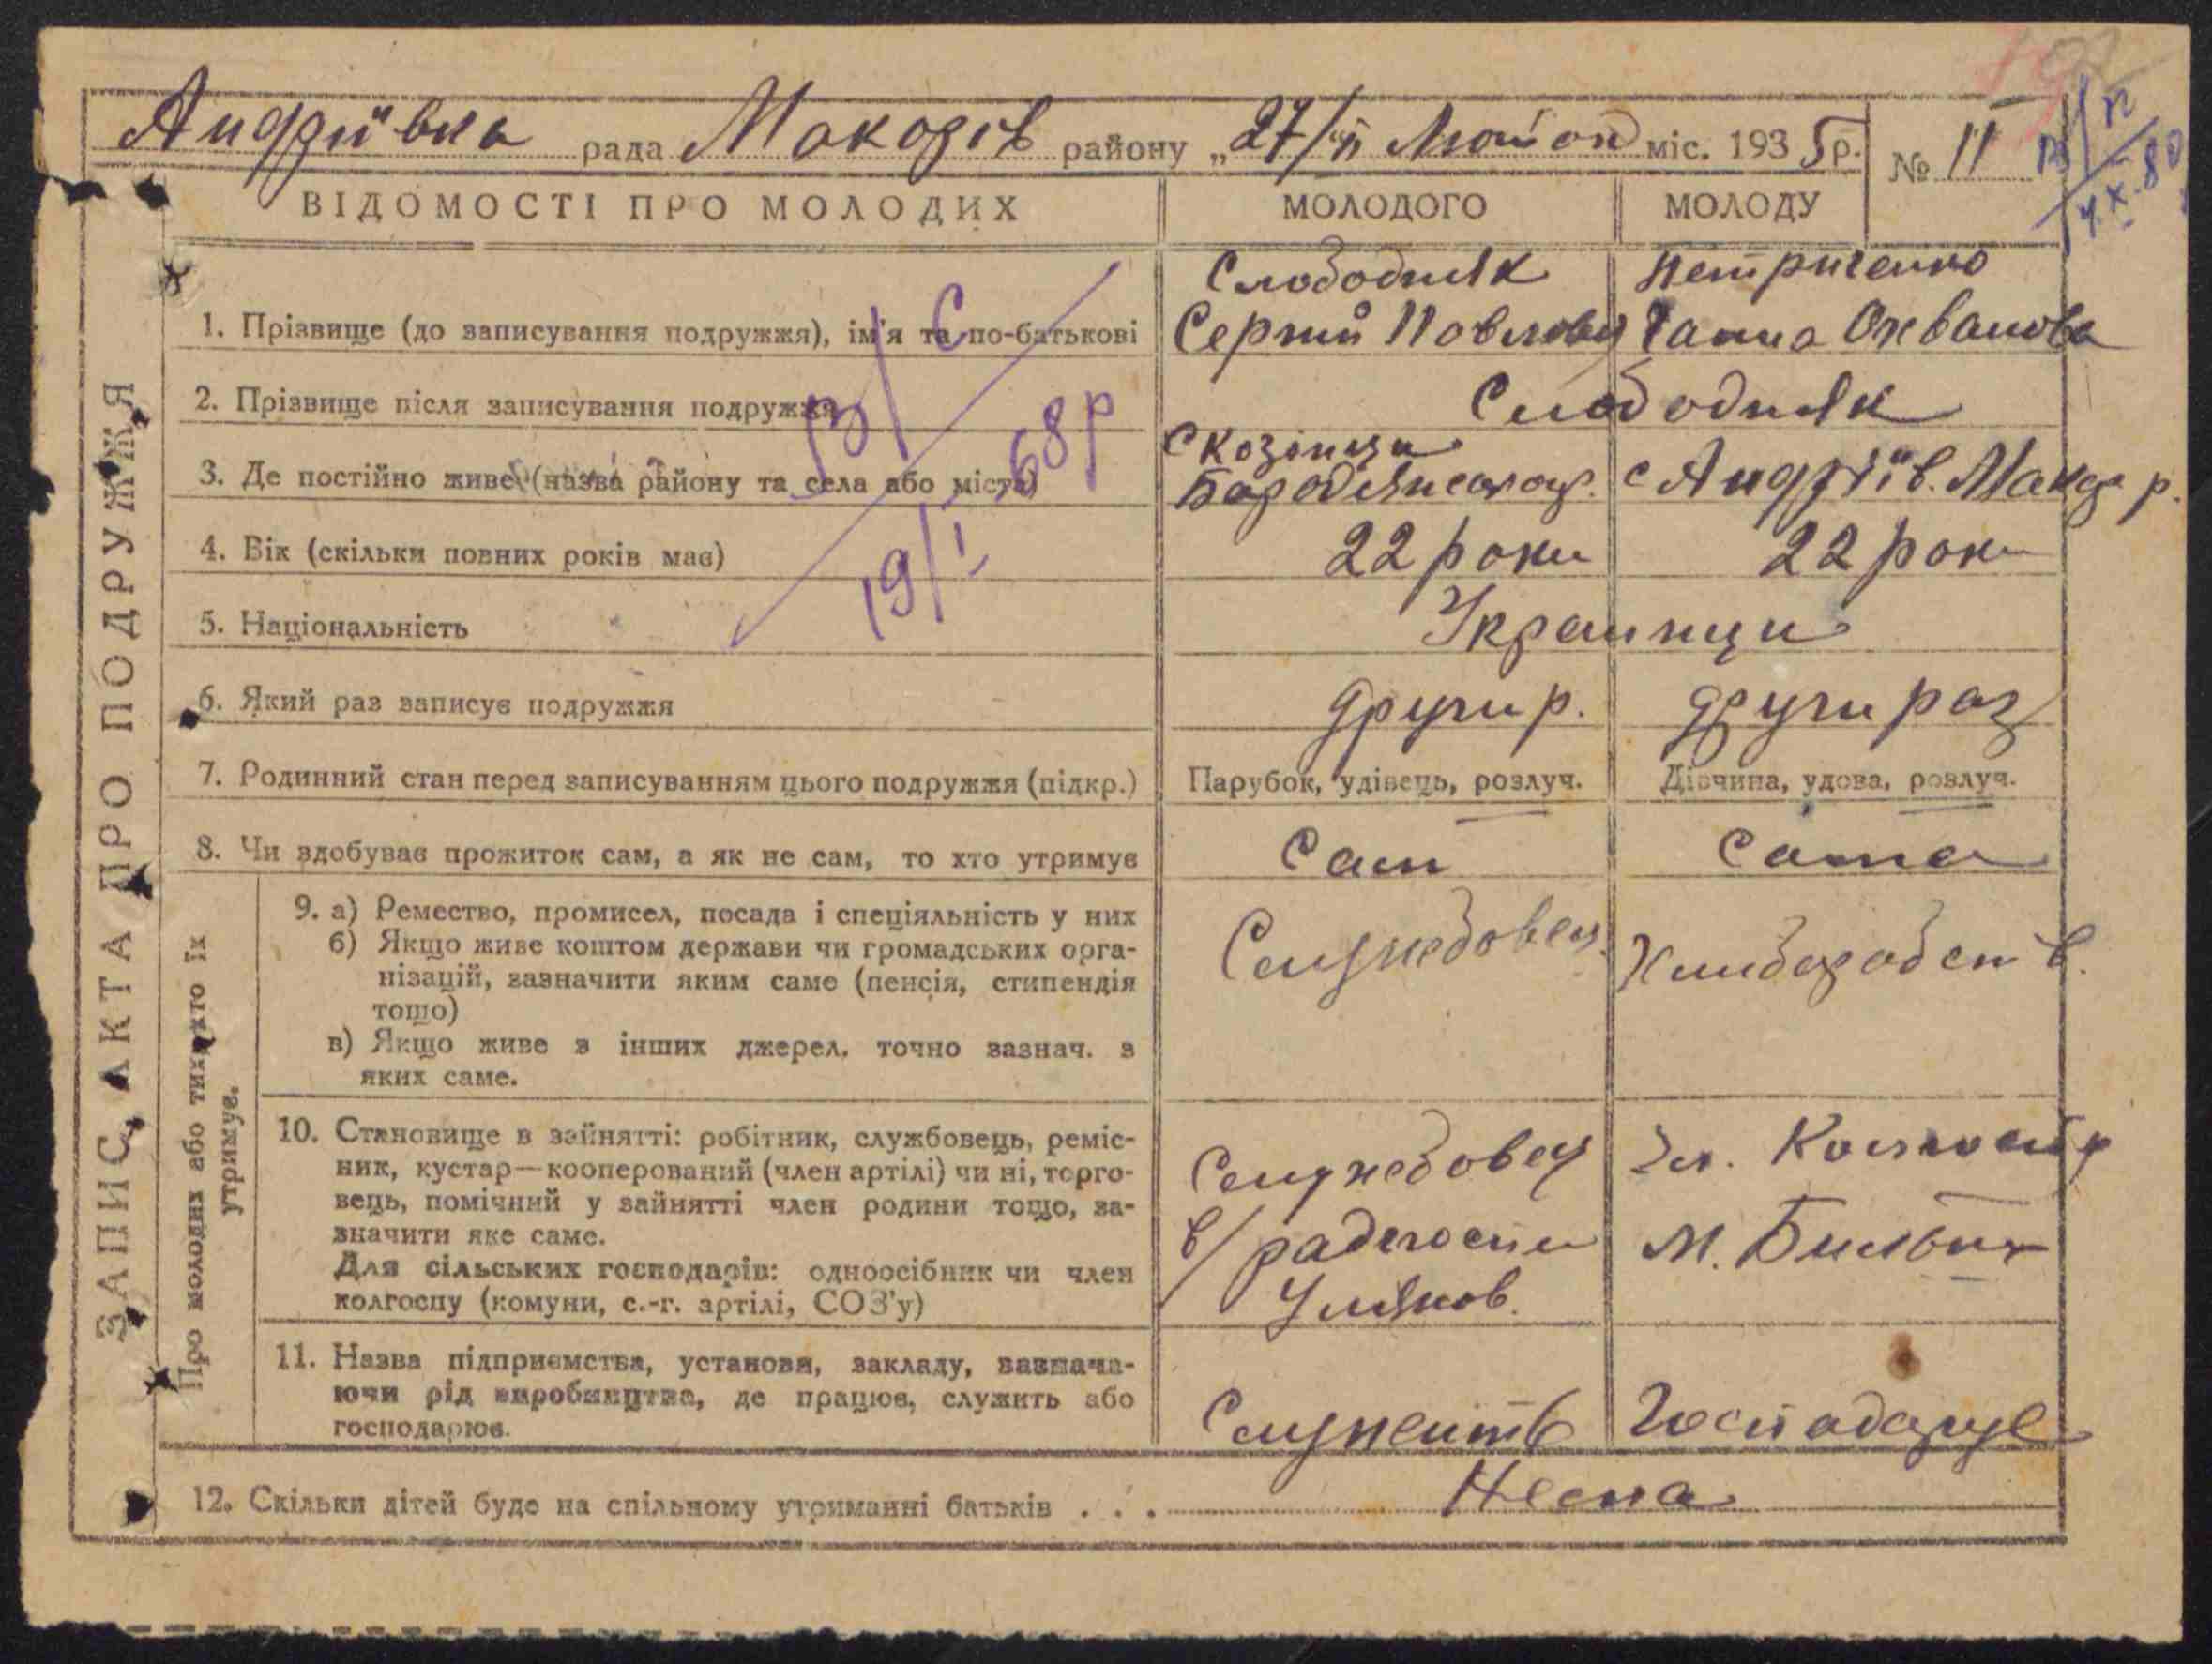 Андріївка рада Макарів району „27/ІІ Лютого міс. 1935 р. № 11
ВІДОМОСТІ ПРО МОЛОДИХ МОЛОДОГО МОЛОДУ
ЗАПИС АКТА ПРО ПОДРУЖЖЯ
Слободяник Петриченко
1. Прізвище (до записування подружжя), ім'я та по-батькові Сергий Павлович Ганна
2. Прізвище після записування подружжя Слободяник
3. Де постійно живе (назва району та села або міста) с Козинци Бородянсько с Андріїв. Мака р.
В/С
19/I 68р
4. Вік (скільки повних років має) 22 роки 22 роки
5. Національність Украинци
6. Який раз записує подружжя други р. други раз
7. Родинний стан перед записуванням цього подружжя (підкр.) Парубок, удівець, розлуч. Дівчина, удова, розлуч.
8. Чи здобуває прожиток сам, а як не сам, то хто утримує Сам Сама
Про молодих або тих, хто їх
утримує.
9. а) Ремество, промисел, посада і спеціяльність у них
б) Якщо живе коштом держави чи громадських орга-
нізацій, зазначити яким саме (пенсія, стипендія
тощо)
в) Якщо живе з інших джерел, точно зазнач. з
яких саме.
Службовец Хлиборобств.
10. Становище в зайнятті: робітник, службовець, реміс-
ник, кустар—кооперований (член артілі) чи ні, торго-
вець, помічний у зайнятті член родини тощо, за-
значити яке саме.
Для сільських господарів: одноосібник чи член
колгоспу (комуни, с.-г. артілі, СОЗ'у)
Службовец
в/радгоспи
Чл.
11. Назва підприємства, установи, закладу, зазнача-
ючи рід виробництва, де працює, служить або
господарює.
Служить Господарує
12. Скільки дітей буде на спільному утриманні батьків . . . Нема